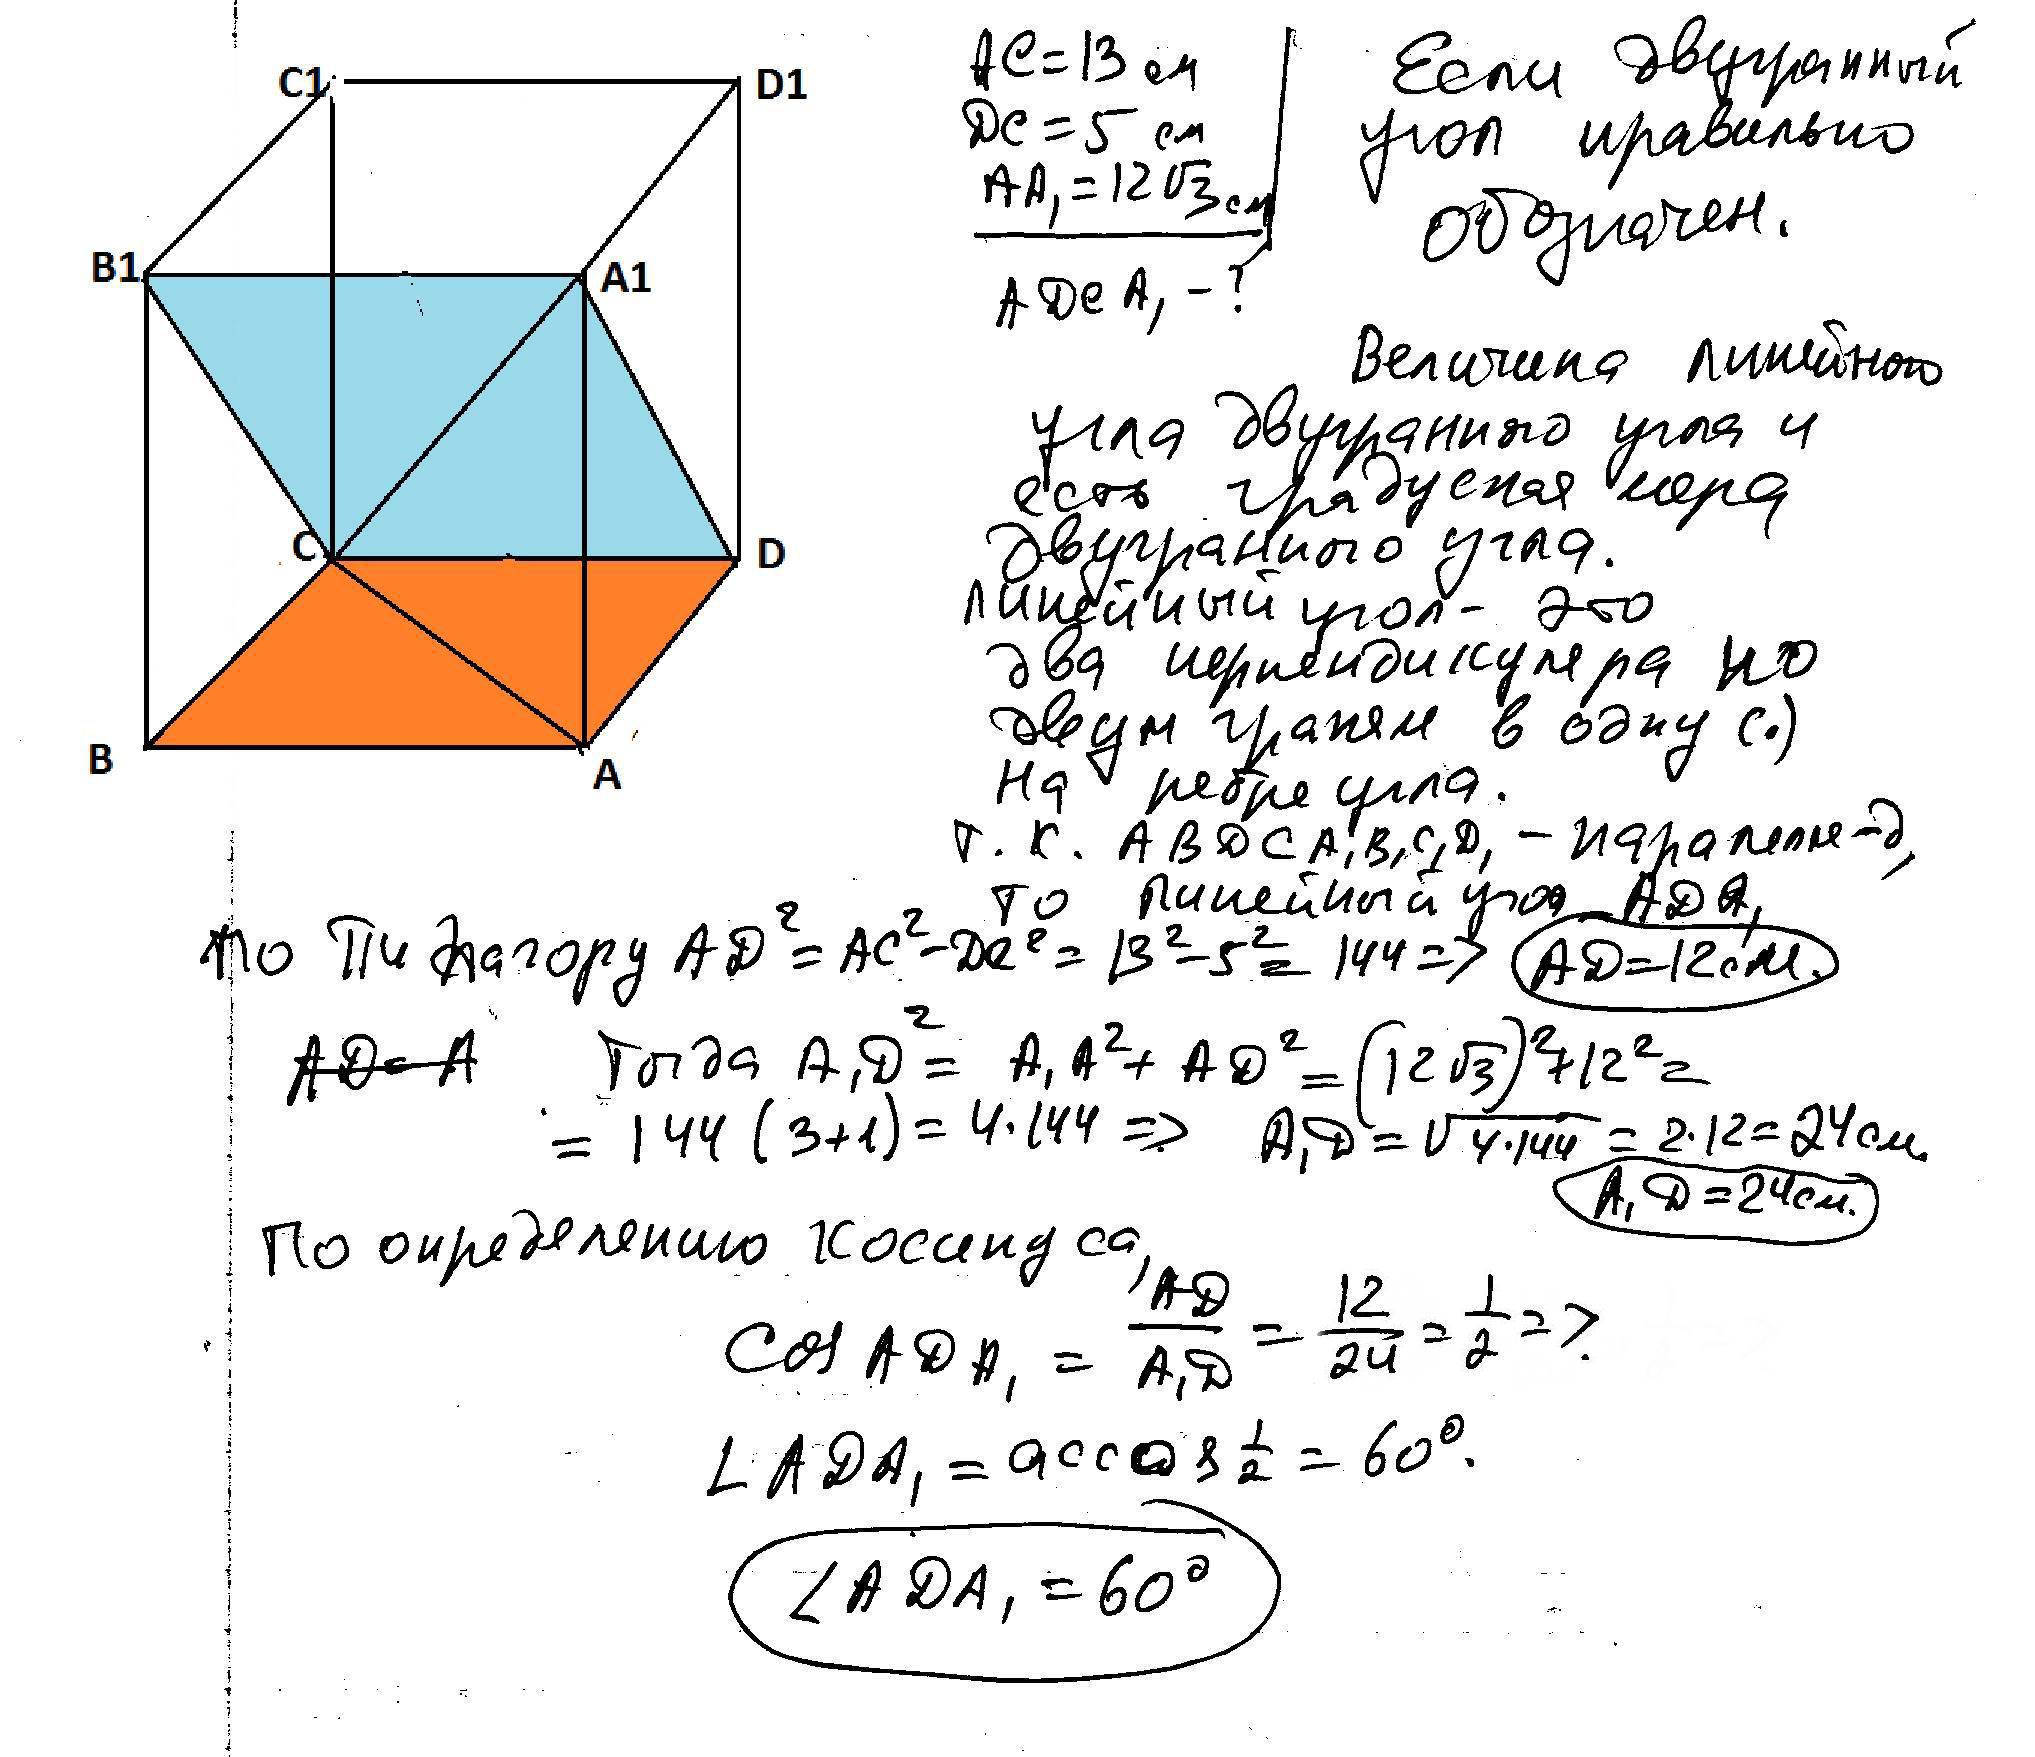 C1
D1
B1
A1
C
D
B
A
AC = 13 см
DC = 5 см
AA₁ = 12√3 см
ADCA₁ - ?
Если двугранный
угол правильно
обозначен.
Величина линейного
угла двугранного угла и
есть градусная мера
двугранного угла.
Линейный угол - это
два перпендикуляра по
двум граням в одну (.)
на ребре угла.
Т. К. ABDCA₁B₁C₁D₁ - параллеле-д,
то линейный угол ADA₁
По Пифагору AD² = AC² - DC² = 13² - 5² = 144 => AD = 12 см.
AD = A Тогда A₁D² = A₁A² + AD² = (12√3)² + 12² =
= 144 (3+1) = 4·144 => A₁D = √4·144 = 2·12 = 24 см.
A₁D = 24 см.
По определению косинуса,
Cos ADA₁ = AD/A₁D = 12/24 = 1/2 =>
∠ADA₁ = arccos 1/2 = 60°.
∠ADA₁ = 60°